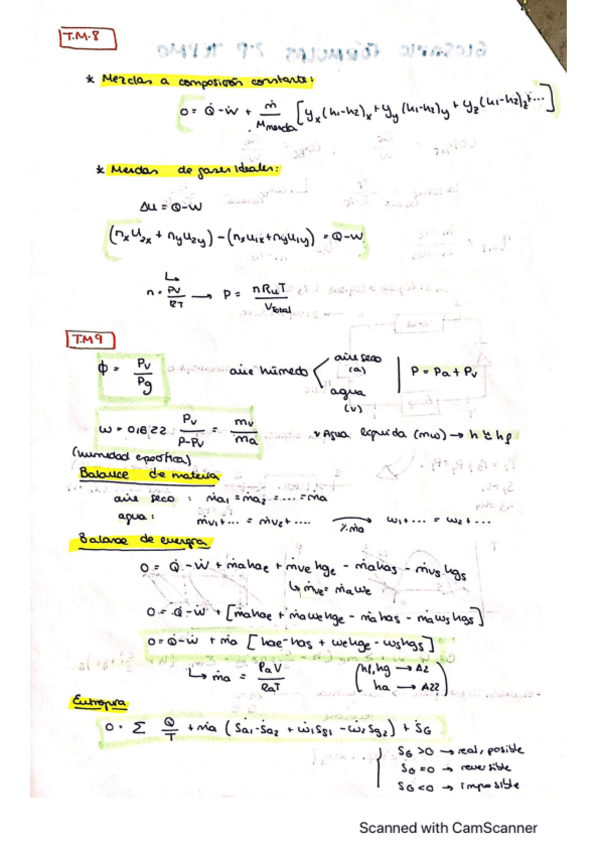 T.M.8
* Mezclas a composición constante:
0 = Q̇ - Ẇ + ṁ/Mmezcla [yx (h1-h2)x + yy (h1-h2)y + yz (h1-h2)z + ...]
* Mezclas de gases ideales:
ΔU = Q-W
(nx U2x + ny U2y) - (nx U1x + ny U1y) = Q-W
n = PV/RT → P = nRuT/Vtotal
T.M 9
ϕ = Pv/Pg aire húmedo < aire seco (a) agua (v) | P = Pa + Pv
ω = 0'622 · Pv/P-Pv = mv/ma
Agua líquida (mw) → h ≅ hf
(humedad específica)
Balance de materia
aire seco : ṁa1 = ṁa2 = .... = ṁa
agua : ṁv1 + ... = ṁv2 + .... → ω1 + ... = ω2 + ...
Balance de energía
0 = Q̇ - Ẇ + ṁa hae + ṁve hge - ṁa has - ṁvs hgs
↳ ṁve = ṁa we
0 = Q̇ - Ẇ + [ṁa hae + ṁa we hge - ṁa has - ṁa ws hgs]
0 = Q̇ - Ẇ + ṁa [hae - has + we hge - ws hgs]
↳ ṁa = Pa V/Ra T (hf, hg → A2 ha → A22)
Entropía
0 = Σ Q̇/T + ṁa (Sa1 - Sa2 + ω1 Sg1 - ω2 Sg2) + ṠG
SG > 0 → real, posible
SG = 0 → reversible
SG < 0 → imposible
Scanned with CamScanner